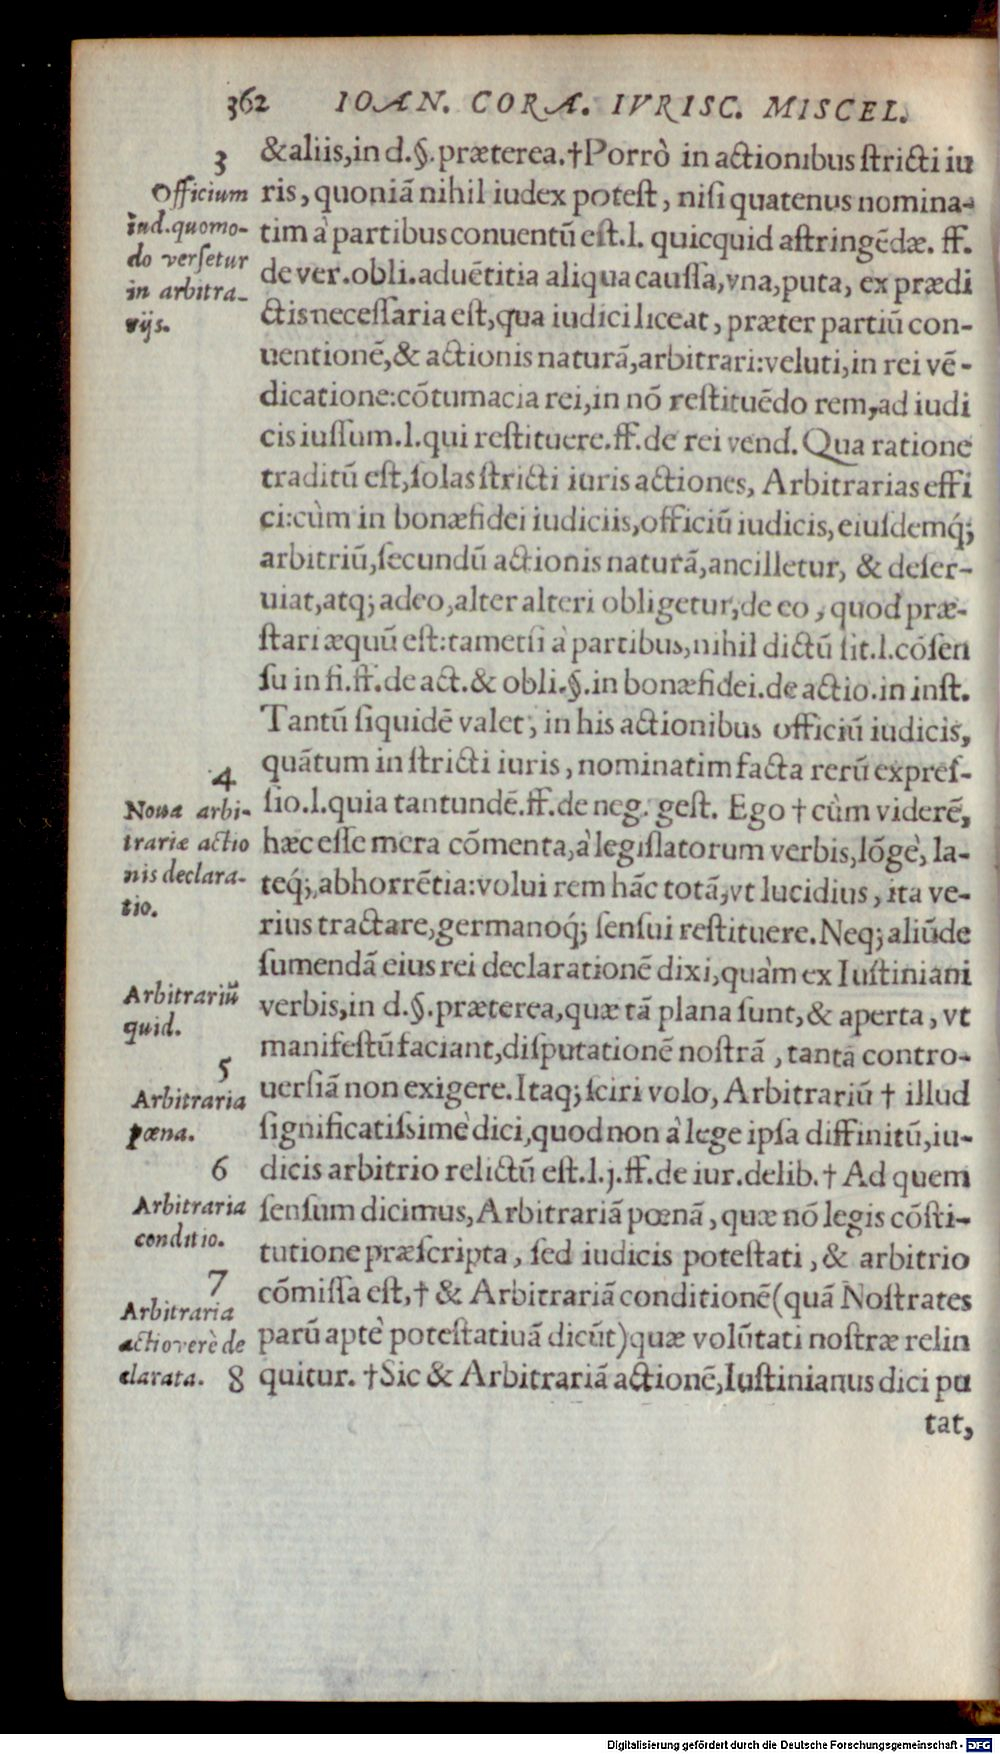 362 IOAN. CORA. IVRISC. MISCEL.
&aliis,in d.§.præterea.†Porrò in actionibus ſtricti iu
ris, quoniã nihil iudex poteſt, niſi quatenus nomina-
tim à partibus conuentũ eſt.l. quicquid aſtringẽdæ. ff.
de ver.obli.aduẽtitia aliqua cauſſa,vna,puta, ex prædi
ctis neceſſaria eſt,qua iudici liceat, præter partiũ con-
uentionẽ,& actionis naturã,arbitrari:veluti,in rei vẽ-
dicatione:cõtumacia rei,in nõ reſtituẽdo rem,ad iudi
cis iuſſum.l.qui reſtituere.ff.de rei vend. Qua ratione
traditũ eſt,ſolas ſtricti iuris actiones, Arbitrarias effi
ci:cùm in bonæfidei iudiciis,officiũ iudicis, eiuſdemq́;
arbitriũ,ſecundũ actionis naturã,ancilletur, & deſer-
uiat,atq; adeo,alter alteri obligetur,de eo, quod præ-
ſtari æquũ eſt:tametſi à partibus,nihil dictũ ſit.l.cõſen
ſu in fi.ff.de act.& obli.§.in bonæfidei.de actio.in inſt.
Tantũ ſiquidẽ valet, in his actionibus officiũ iudicis,
quãtum in ſtricti iuris, nominatim facta rerũ expreſ-
ſio.l.quia tantundẽ.ff.de neg. geſt. Ego † cùm viderẽ,
hæc eſſe mera cõmenta,à legiſlatorum verbis,lõgè, la-
teq́;,abhorrẽtia:volui rem hãc totã,vt lucidius, ita ve-
rius tractare,germanoq́; ſenſui reſtituere. Neq; aliũde
ſumendã eius rei declarationẽ dixi,quàm ex Iuſtiniani
verbis,in d.§.præterea,quæ tã plana ſunt,& aperta, vt
manifeſtũ faciant,diſputationẽ noſtrã, tantã contro-
uerſiã non exigere. Itaq; ſciri volo, Arbitrariũ † illud
ſignificatiſsimè dici,quod non à lege ipſa diffinitũ,iu-
dicis arbitrio relictũ eſt.l.j.ff.de iur.delib.† Ad quem
ſenſum dicimus, Arbitrariã pœnã, quæ nõ legis cõſti-
tutione præſcripta, ſed iudicis poteſtati, & arbitrio
cõmiſſa eſt,† & Arbitrariã conditionẽ(quã Noſtrates
parũ aptè poteſtatiuã dicũt)quæ volũtati noſtræ relin
quitur. †Sic & Arbitrariã actionẽ,Iuſtinianus dici pu
tat,
3
Officium
iud.quomo-
do verſetur
in arbitra-
rijs.
4
Noua arbi-
trariæ actio
nis declara-
tio.
Arbitrariũ
quid.
5
Arbitraria
pœna.
6
Arbitraria
conditio.
7
Arbitraria
actio verè de
clarata. 8
Digitalisierung gefördert durch die Deutsche Forschungsgemeinschaft - DFG